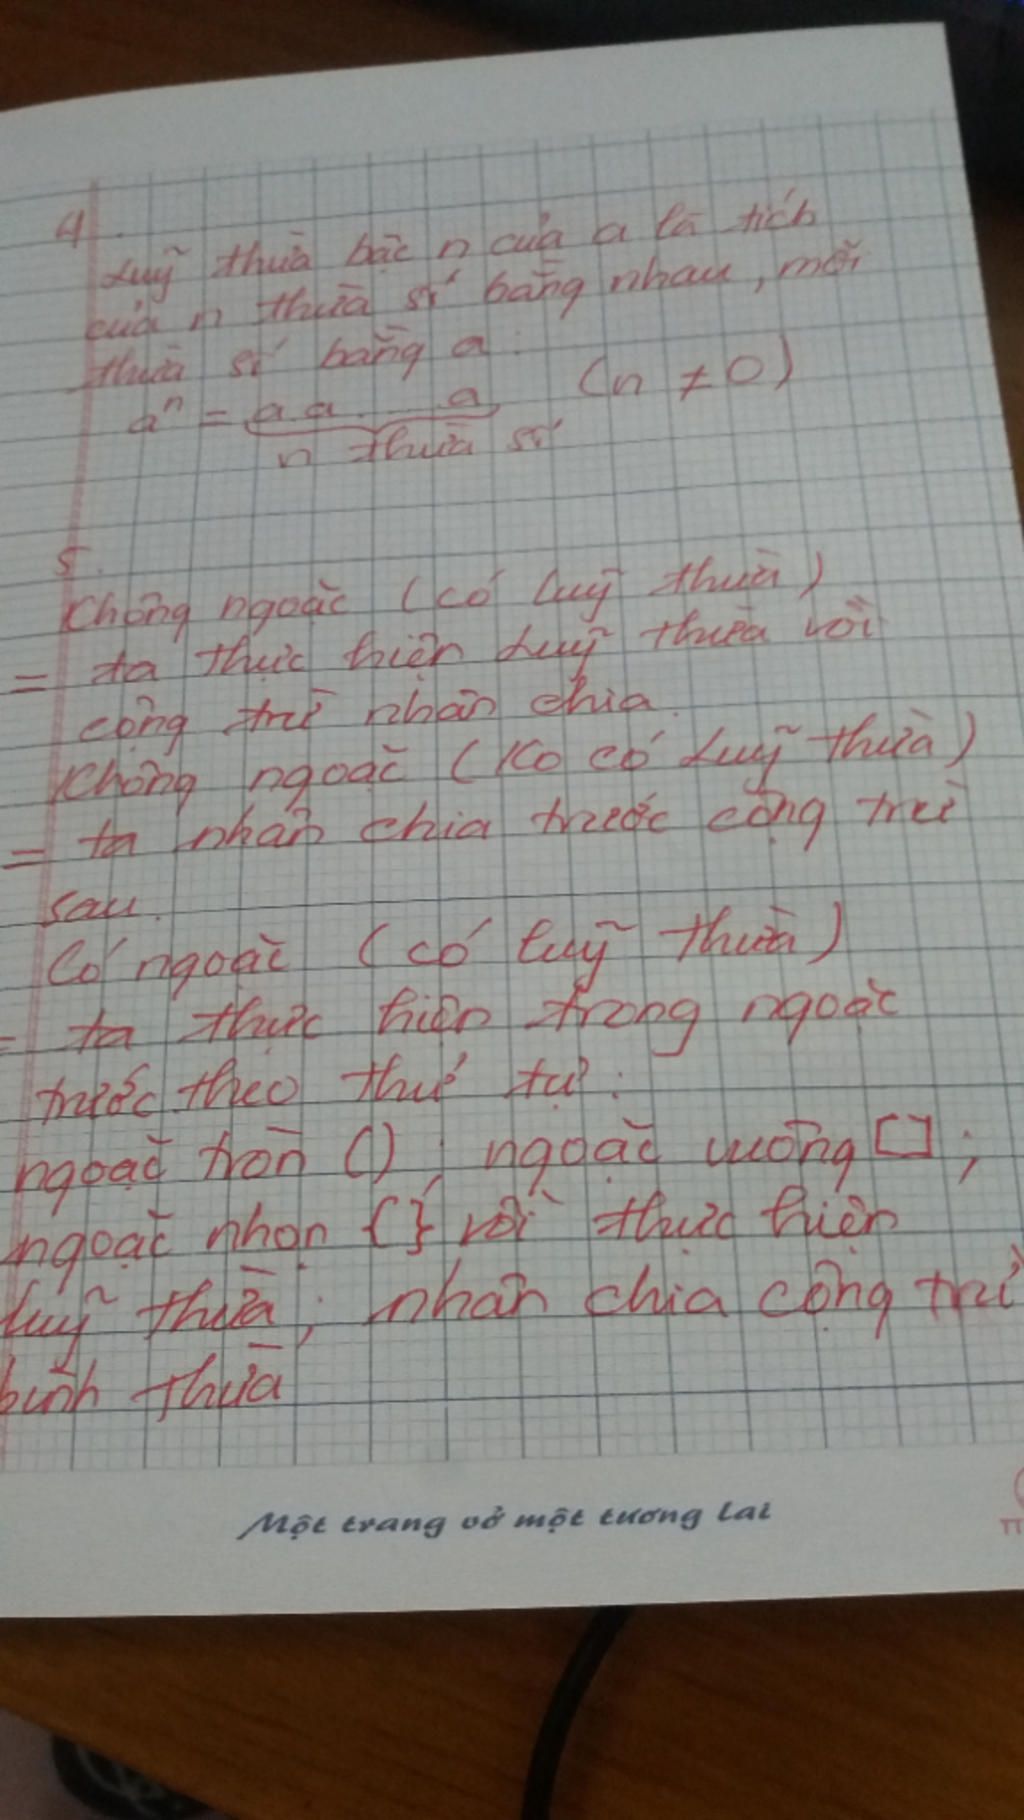 4.
Luỹ thừa bậc n của a là tích
của n thừa số bằng nhau, mỗi
thừa số bằng a:
aⁿ = a a ... a (n ≠ 0)
n thừa số
5.
Không ngoặc (có luỹ thừa)
= ta thực hiện luỹ thừa rồi
cộng trừ nhân chia.
Không ngoặc (Ko có luỹ thừa)
= ta nhân chia trước cộng trừ
sau.
Có ngoặc (có luỹ thừa)
= ta thực hiện trong ngoặc
trước theo thứ tự:
ngoặc tròn (); ngoặc vuông [];
ngoặc nhọn {} rồi thực hiện
luỹ thừa; nhân chia cộng trừ
bình thừa
Một trang vở một tương lai